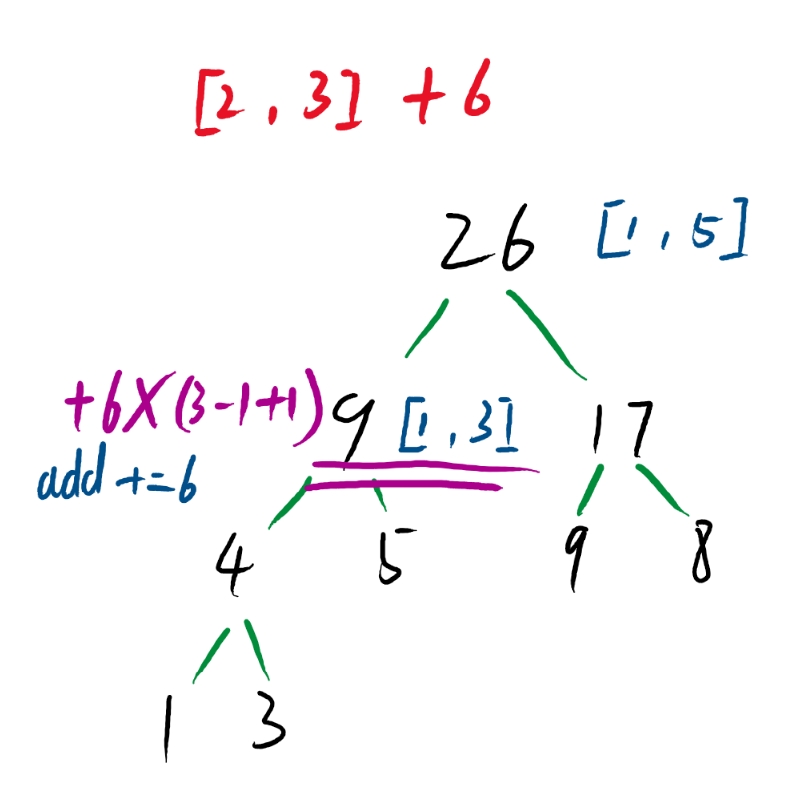 [2,3] +6
26 [1,5]
+6×(3-1+1) 9 [1,3] 17
add +=6
4 5 9 8
1 3